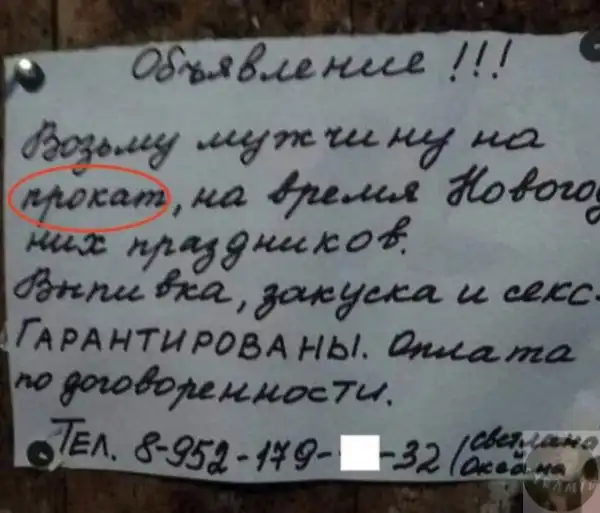 Объявление !!!
Возьму мужчину на
прокат, на время Новогод
них праздников.
Выпивка, закуска и секс-
ГАРАНТИРОВАНЫ. Оплата
по договоренности.
ТЕЛ. 8-952-179- -32 (Светлана
Океана